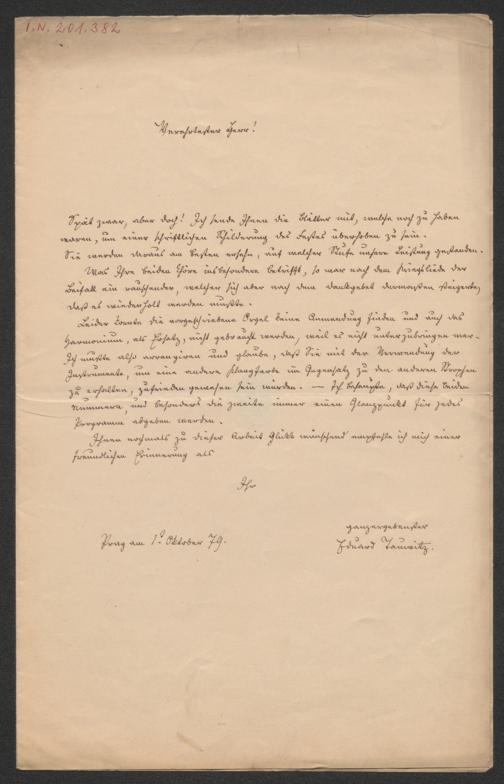 I.N. 201.382
Verehrtester Herr!
Spät zwar, aber doch! Ich sende Ihnen die Blätter mit, welche noch zu haben
waren, um einer schriftlichen Schilderung des Festes überhoben zu sein.
Sie werden daraus am besten ersehen, auf welcher Stufe unsere Leistung gestanden.
Was Ihre beiden Chöre insbesondere betrifft, so war nach dem Kriegsliede der
Beifall ein rauschender, welcher sich aber nach dem Dankgebet dermassen steigerte,
daß es wiederholt werden mußte.
Leider konnte die vorgeschriebene Orgel keine Anwendung finden und auch das
Harmonium, als Ersatz, nicht gebraucht werden, weil es nicht unterzubringen war.
Ich mußte also arrangiren und glaube, daß Sie mit der Verwendung der
Instrumente, um eine andere Klangfarbe im Gegensatz zu den anderen Strophen
zu erhalten, zufrieden gewesen sein würden. — Ich behaupte, daß diese beiden
Nummern, und besonders die zweite immer einen Glanzpunkt für jedes
Programm abgeben werden.
Ihnen nochmals zu dieser Arbeit Glück wünschend empfehle ich mich einer
freundlichen Erinnerung als
Ihr
ganzergebenster
Prag am 1t Oktober 79.
Eduard Tauwitz.